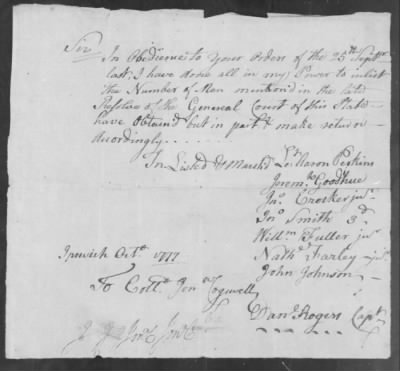 Sir
In Obedience to Your Orders of the 25th Septbr
last, I have done all in my Power to inlist
the Number of Men mention'd in the late
Resolve of the General Court of this State
have Obtaind but in part & make return
accordingly
In Listed & March'd Lt Aaron Perkins
Jerem Goodhue
Jno Crocker jur
Jno Smith 3d
Willm Fuller jur
Ipswich Octo 1777
Nathl Farley jur
John Johnson
To Collo Jona Cogswell
Danl Rogers Capt